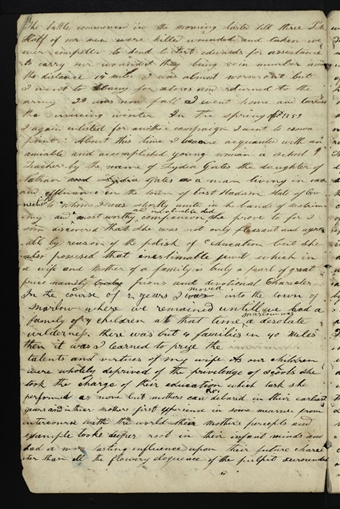 The battle commenced in the morning lasted till three
Half of our men were killed wounded and taken
ever compelled to send to Fort Edwards for assistance
to carry our wounded they being in number
the distance 14 mile I was almost wornout but
I went to Albany for and returned to the
army It was now fall I went home and
the ensuing winter In the spring of 1759
I again enlisted for another campaign I went to crown
point About this time I became acquainted with an
amiable and accomplished young woman a school
teacher by the name of Lydia Gates the daughter of
Nathan Gates a man living in
and affluence in the town of East Haddam State of
to whom I was shortly united in the bands of
and most worthy companion she prove to for I
soon discovered that she was not only pleasant and
able by reason of the polish of education but she
also possesed that inestimable which in
a wife and Mother of a family is truly a pearl of great
price namely pious and devotional Character
In the course of years I moved into the town of
Marlow where we remained until we had a
family of 4 children at that time a desolate
wilderness there was but 4 families in 40 miles
then it was I learned to prize the
talents and virtues of my wife As our children
were wholely deprived of the priveledge of schools she
took the charge of their education which task she
performed as none but mothers can debard in their earliest
years
intercourse with the world their Mothers precepts and
example took deeper root in their infant minds and
had a more lasting influence upon their future chara
cter than all the flowery eloquence of the pulpit surrounded